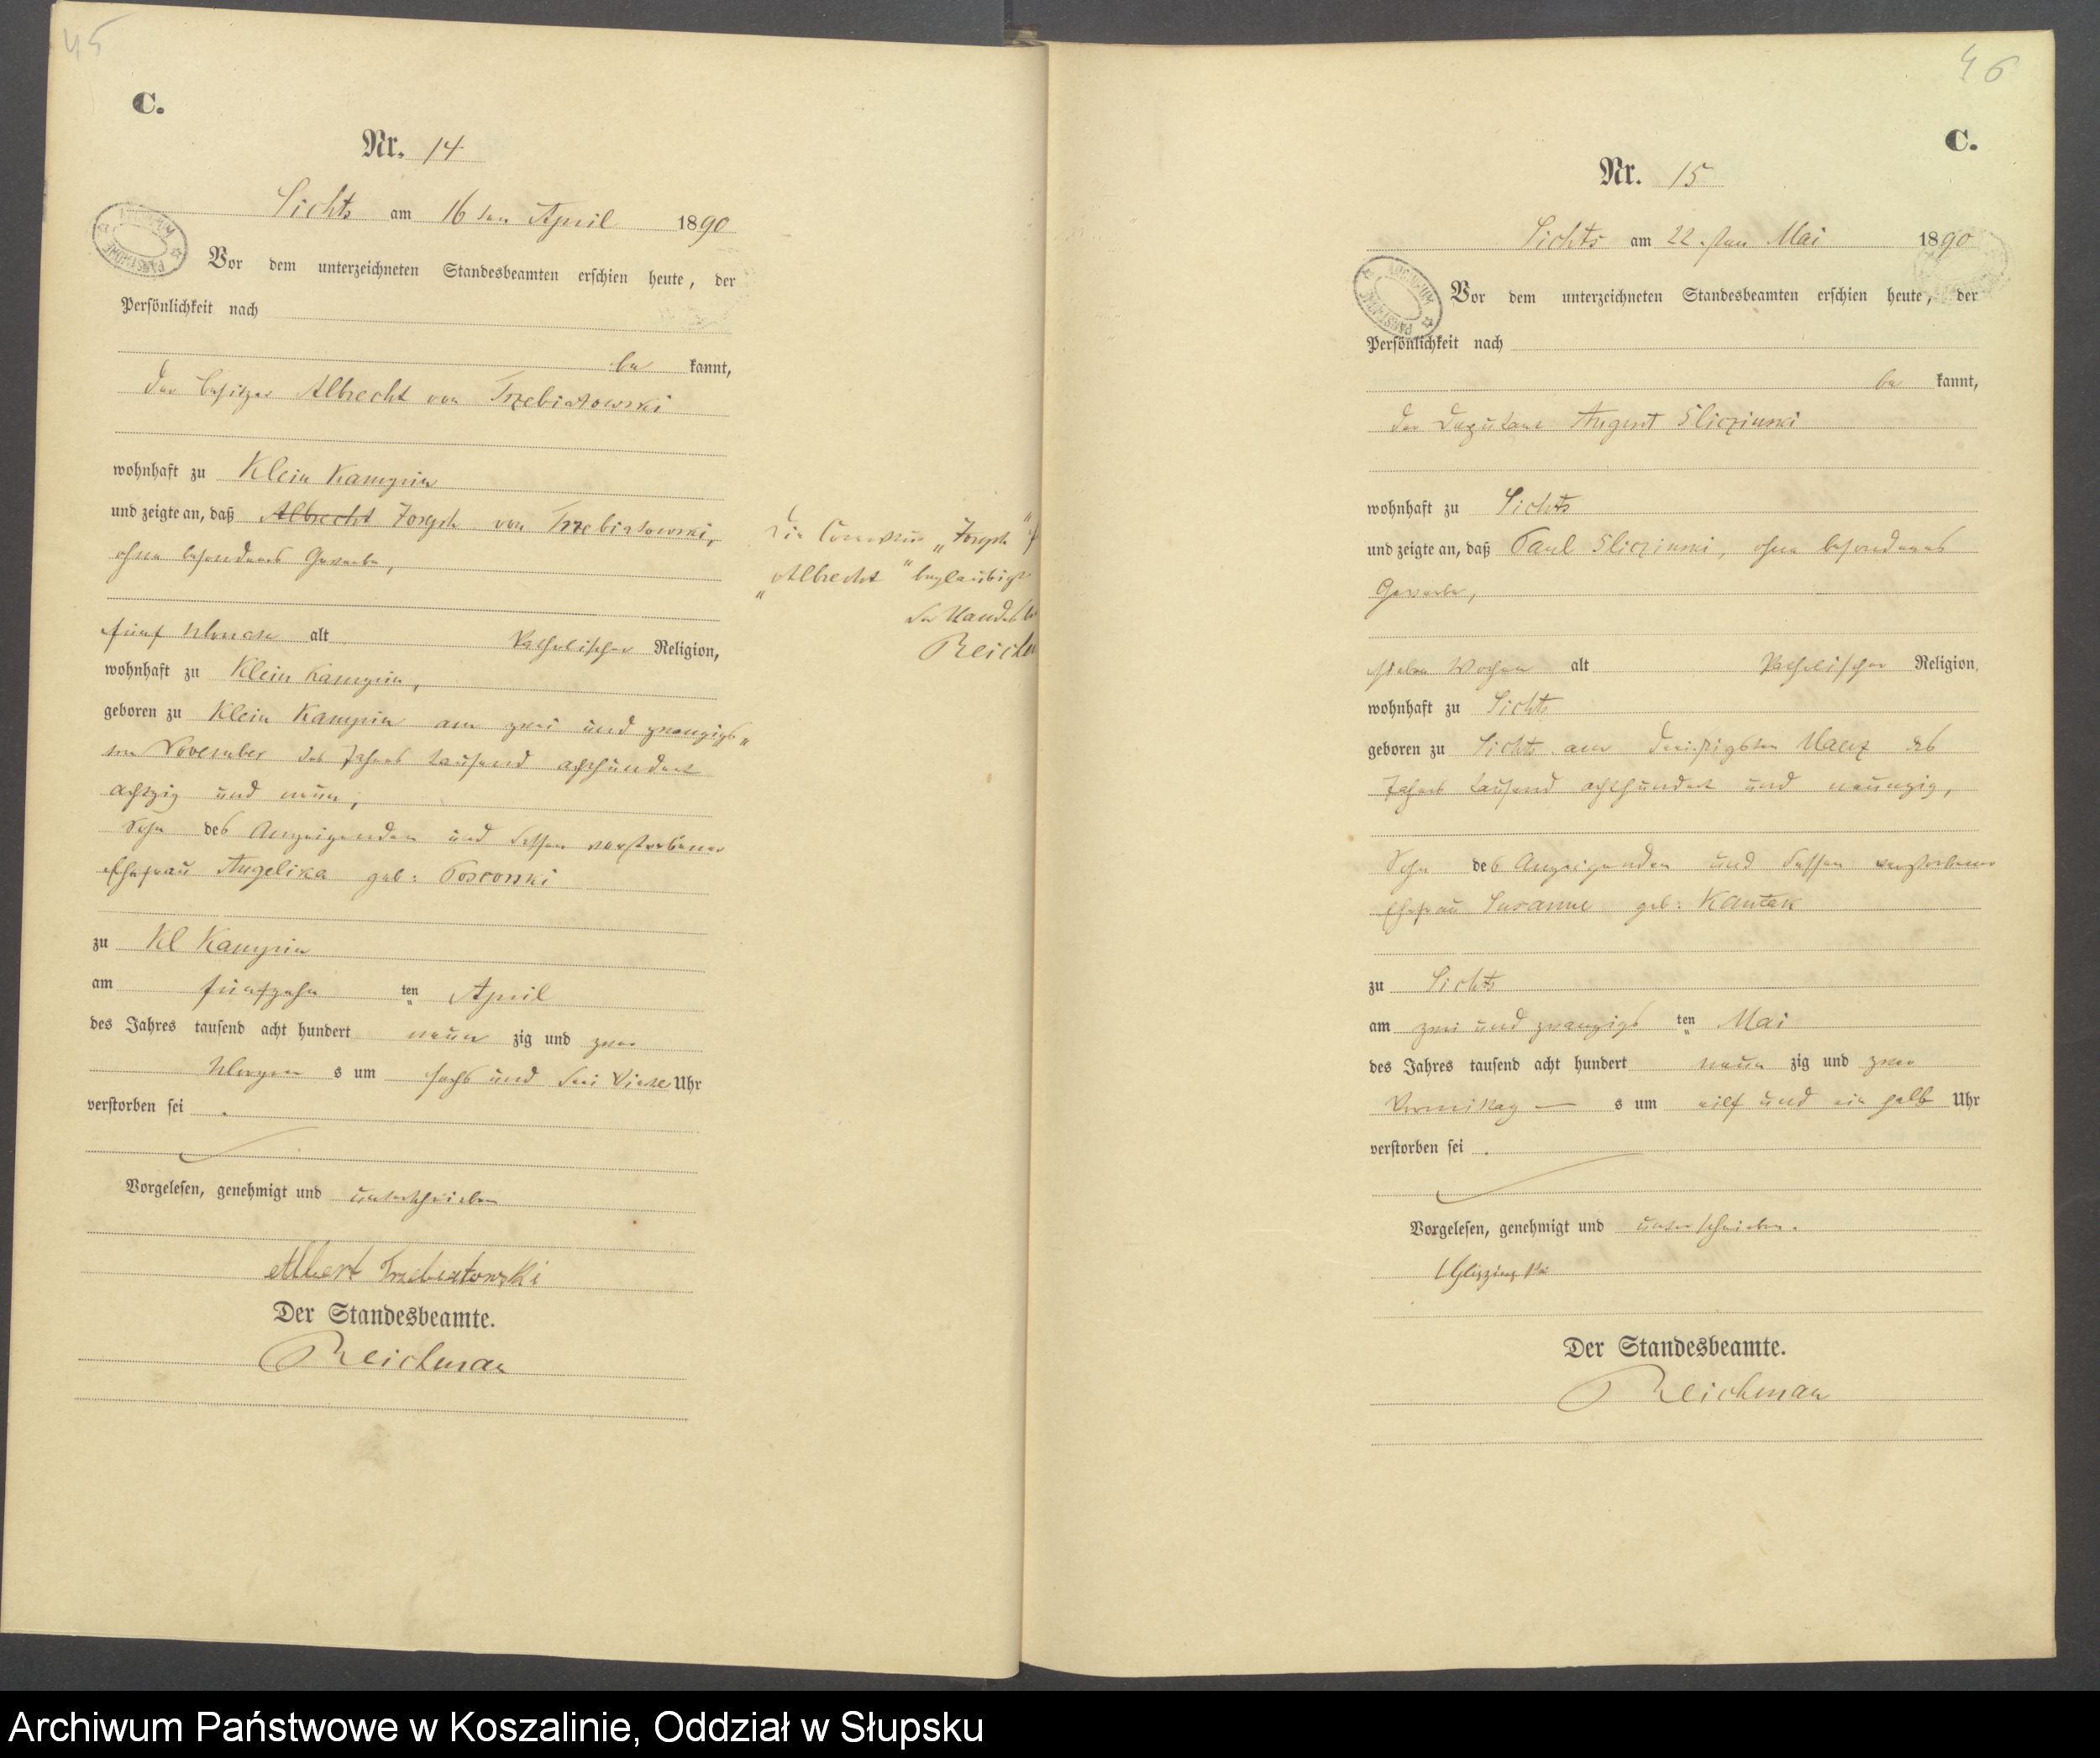 45
C.
Nr. 14
Lichts am 16ten April 1890
Vor dem unterzeichneten Standesbeamten erschien heute, der
Persönlichkeit nach
be kannt,
der Besitzer Albrecht von Trzebiatowski
wohnhaft zu Klein Kampin
und zeigte an, daß Albrecht Joseph von Trzebiatowski,
ohne besonderes Gewerbe,
fünf Monate alt katholischer Religion,
wohnhaft zu Klein Kampin,
geboren zu Klein Kampin am zwei und zwanzigs„
ten November des Jahres tausend achthundert
achtzig und neun,
Sohn des Anzeigenden und dessen verstorbener
Ehefrau Angelika geb:
zu Kl Kampin
am fünfzehn ten April
des Jahres tausend acht hundert neun zig und zwar
Morgen s um sechs und drei Viertel Uhr
verstorben sei .
Vorgelesen, genehmigt und unterschrieben
Albert Trzebiatowski
Der Standesbeamte.
Reichman
Die „Joseph“ f
„Albrecht“ beglaubigt
der Standesb
Reichm
46
C.
Nr. 15
Lichts am 22.ten Mai 1890
Vor dem unterzeichneten Standesbeamten erschien heute, der
Persönlichkeit nach
be kannt,
der Deputant August Sliczinski
wohnhaft zu Lichts
und zeigte an, daß Paul Sliczinski, ohne besonderes
Gewerbe,
sieben Wochen alt katholischer Religion,
wohnhaft zu Lichts
geboren zu Lichts am dreißigsten Maerz des
Jahres tausend achthundert und neunzig,
Sohn des Anzeigenden und dessen verstorbener
Ehefrau Susanne geb: Kantak
zu Lichts
am zwei und zwanzigs ten Mai
des Jahres tausend acht hundert neun zig und zwar
Vormittag — s um eilf und ein halb Uhr
verstorben sei .
Vorgelesen, genehmigt und unterschrieben.
Der Standesbeamte.
Reichman
Archiwum Państwowe w Koszalinie, Oddział w Słupsku